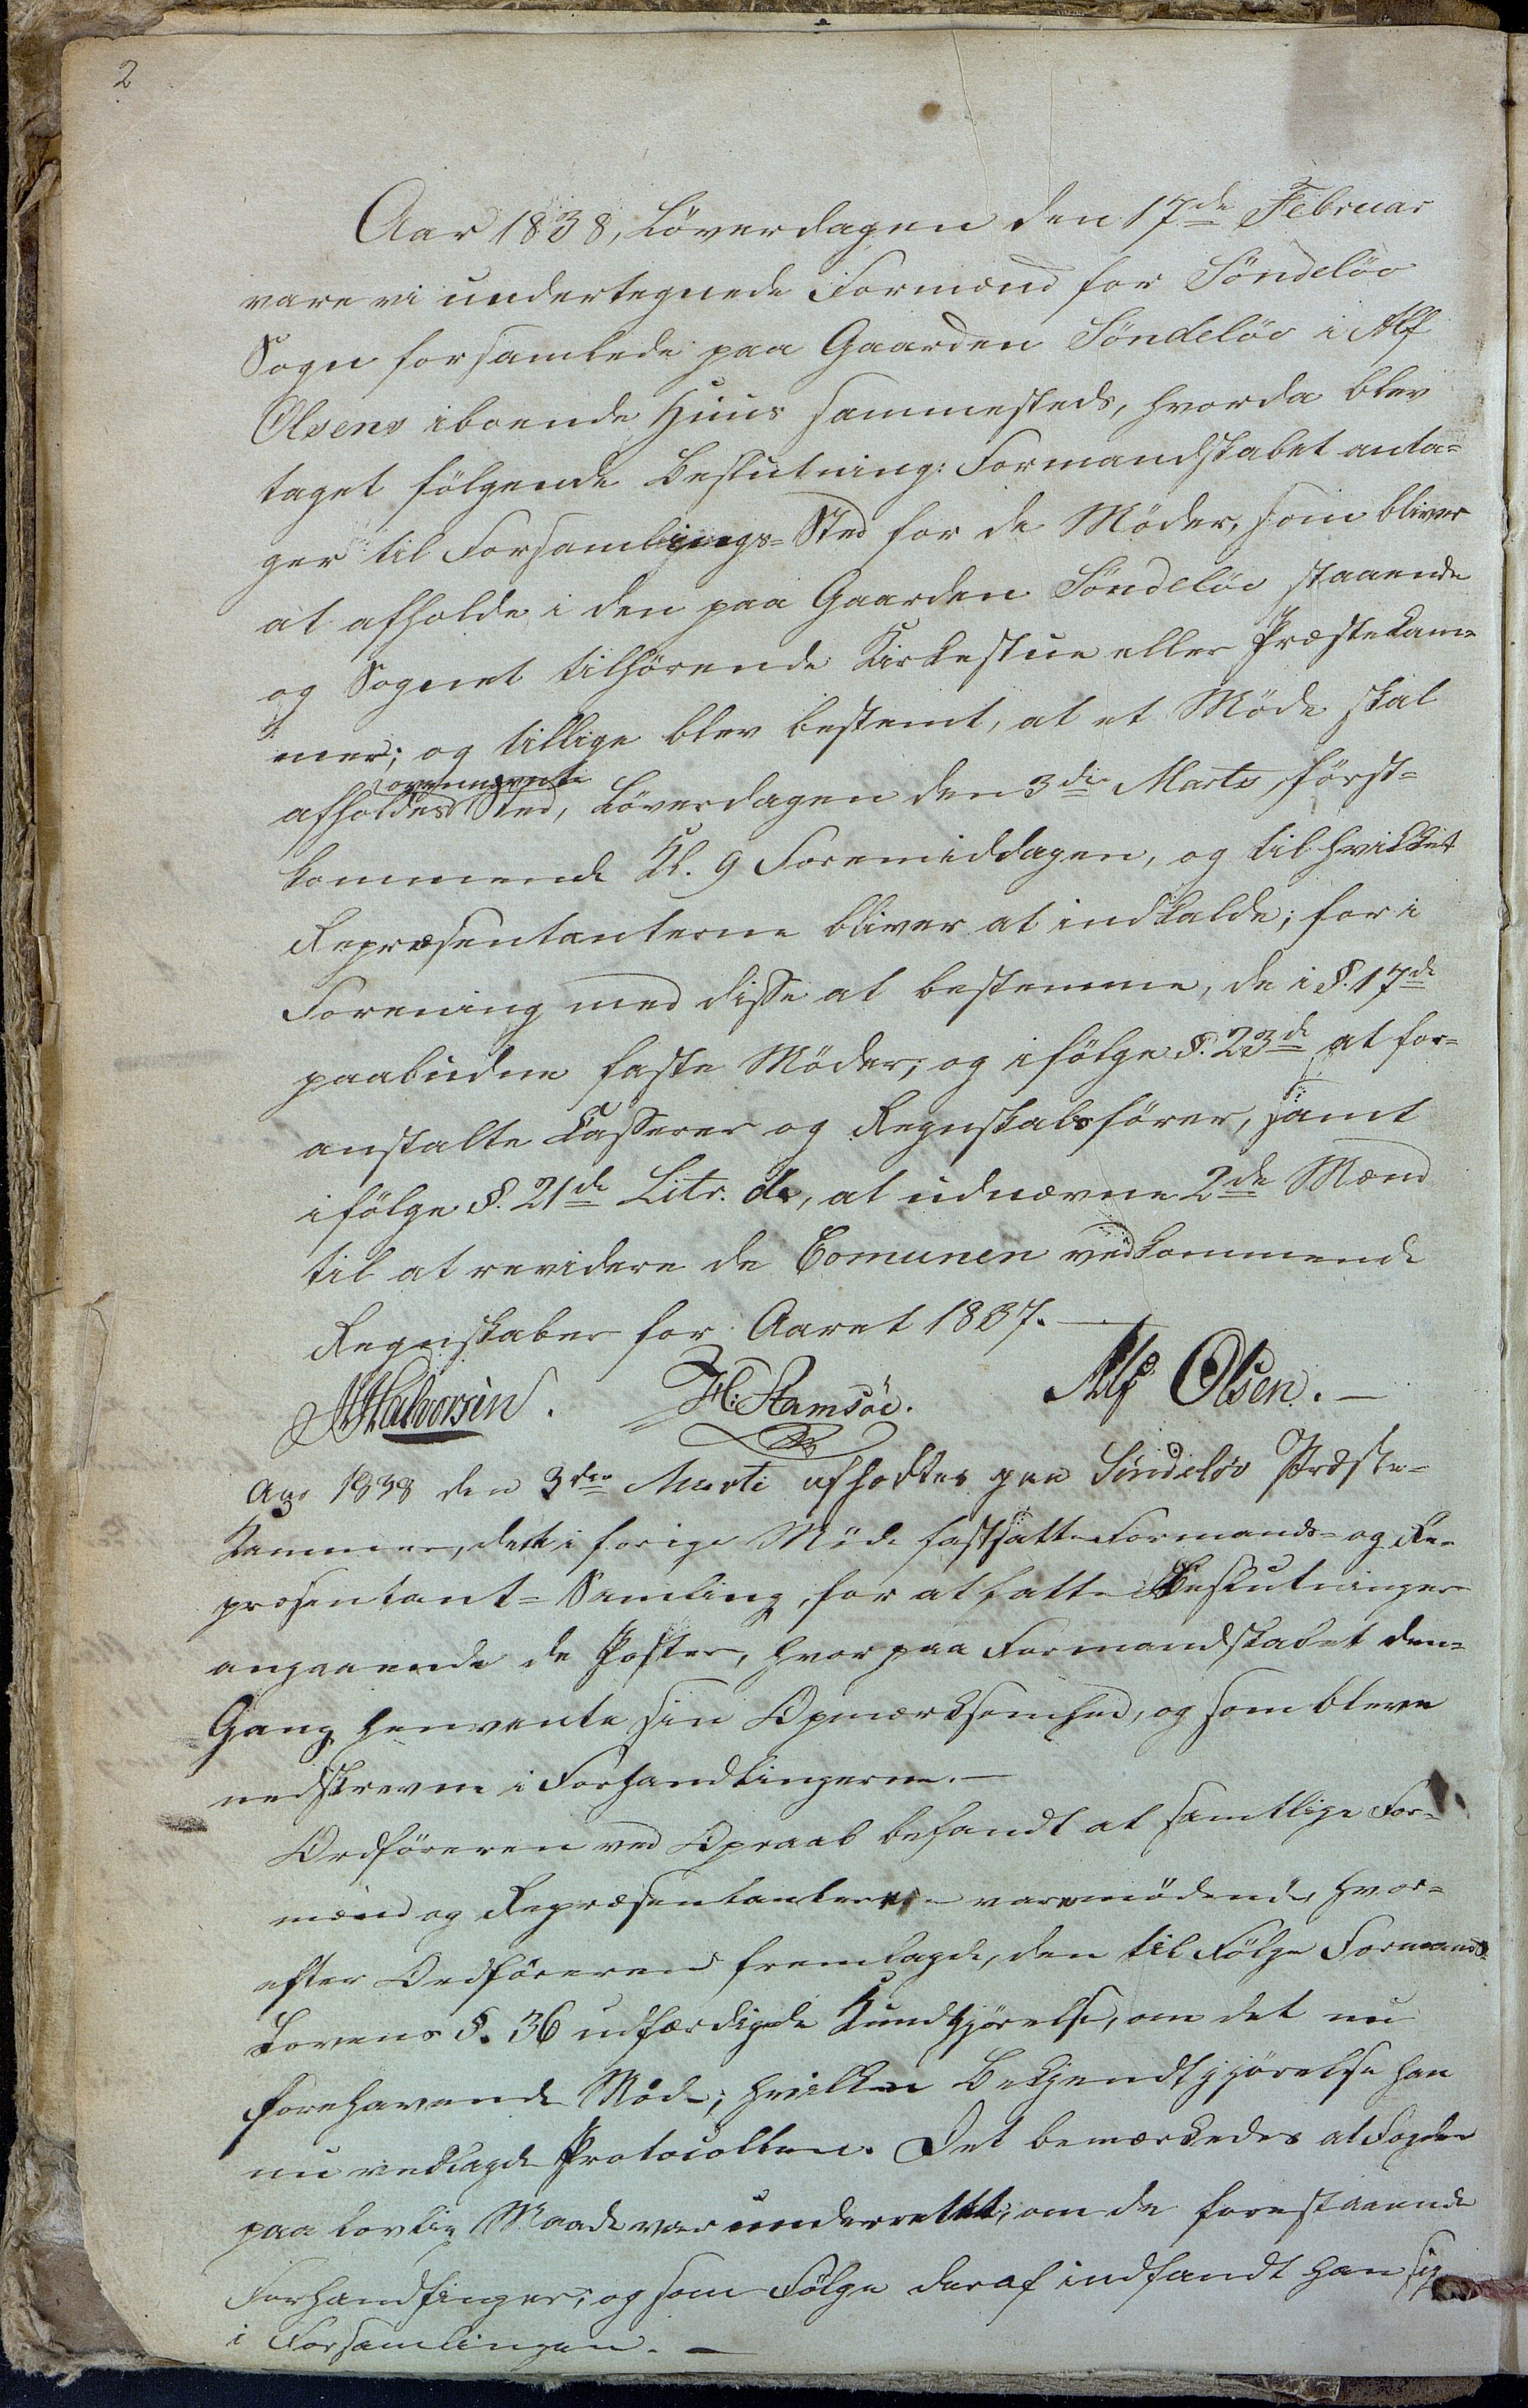 2
Aar 1838, Löverdagen den 17de Februar
vare vi undertegnede Formænd for Söndelöv
Sogn forsamlede paa Gaarden Söndelöv i Alf
Olsens iboende Huus sammesteds, hvorda blev
taget fölgende Beslutning: Formandskabet anta=
ger til Forsamlings=Sted for de Möder, som bliver
at afholde i den paa Gaarden Söndelöv staaende
og Sognet tilhörende Kirkestue eller Præstekam=
mer; og tillige blev bestemt, at et Möde skal
ovennævnte
afholdes Sted, Löverdagen den 3die Marts först=
kommende Kl. 9 Formiddagen, og til hvilket
Repræsentanterne bliver at indkalde; for i
Forening med disse at bestemme, de i §. 17de
paabudne faste Möder; og ifölge §. 23de at for=
anstalte Casserer og Regnskabsförer, samt
ifölge §. 21de Litr. d, at udnævne 2de Mænd
til at revidere de Comunen vedkommende
Regnskaber for Aaret 1837.
Halvorsen. H: Stamsöe. Alf Olsen.
Aar 1838 den 3die Marti afholdtes paa Söndelöv Præste=
Kammer, dett i forige Möde fastsatte Formands= og Re=
præsentant=Samling, for at fatte Beslutninger
angaaende de Poster, hvorpaa Formandskabet den=
Gang henvente sin Opmærksomhed, og som bleve
nedskrevne i Forhandlingerne.
Ordföreren ved Opraab befandt at samtlige For=
mænd og Repræsentantere vare mödende, hvor=
efter Ordföreren fremlagde, den til Fölge Formands
Lovens §. 36 udfærdigede Kundgjörelse, om det nu
forehavende Möde; hvilken Bekjendtgjörelse han
nu vedlagde Protocollen. Det bemærkedes at Fogden
paa lovlig Maade var underrettet, om de forestaaende
Forhandlinger; og som Fölge deraf indfandt han sig
i Forsamlingen.